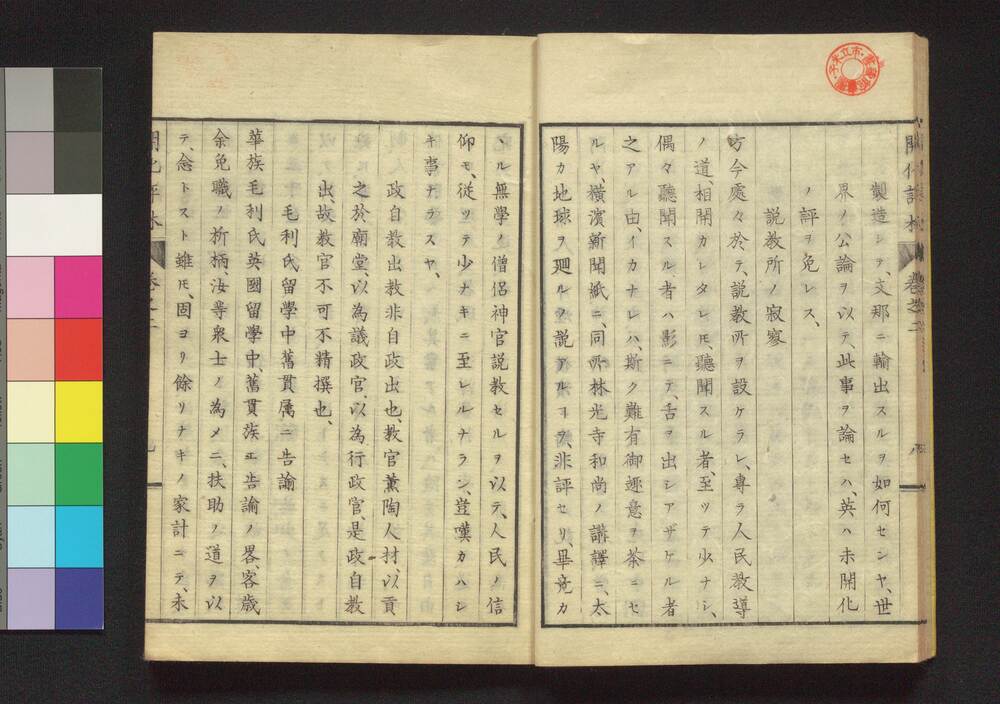 開化評林 巻之二
製造シテ、支那ニ輸出スルヲ如何センヤ、世
界ノ公論ヲ以テ、此事ヲ論セハ、英ハ未開化
ノ評ヲ免レス、
説教所ノ寂寥
方今處々於テ、説教所ヲ設ケラレ、専ラ人民教導
ノ道、相開カレタレ𪜈、聽聞スル者、至ツテ少ナシ、
偶々聽聞スル者ハ影ニテ、舌ヲ出シアザケル者
之アル由、イカナレハ、斯ク難有御趣意ヲ茶ニセ
ルヤ、横濱新聞紙ニ、同所林光寺和尚ノ講譯ニ、太
陽カ地球ヲ廻ルノ説アルヿヲ、非評セリ、畢竟カ
ヽル無學ノ僧侶神官説教セルヲ以テ、人民ノ信
仰モ、従ツテ少ナキニ至レルナラン、豈嘆カハシ
キ事ナラスヤ、
政自教出教非自政出也、教官薫陶人材、以貢
之於廟堂、以為議政官、以為行政官、是政自教
出、故教官不可不精撰也、
毛利氏留學中舊貫属ニ告諭
華族毛利氏英國留學中、舊貫族エ告諭ノ畧、客歳
余免職ノ折柄、汝等衆士ノ為メニ、扶助ノ道ヲ以
テ、念トスト雖𪜈、固ヨリ餘リナキノ家計ニテ、未
開化評林 巻之二